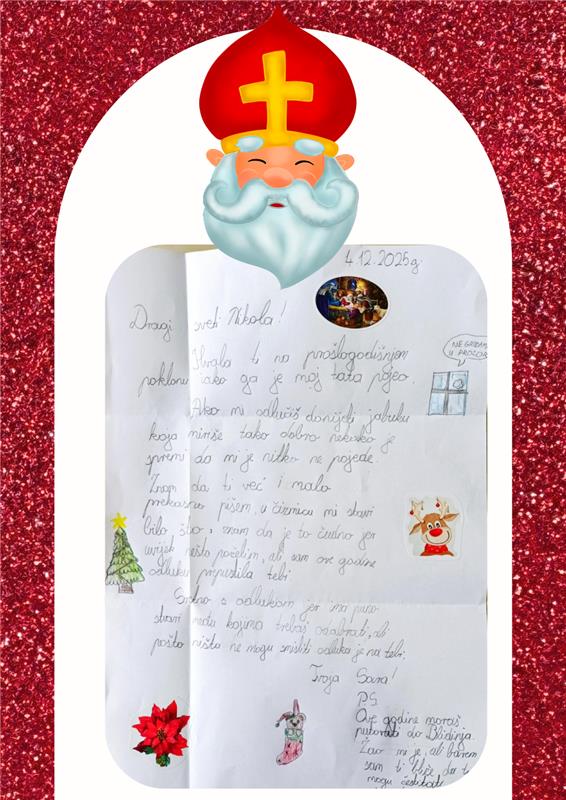 4.12.2025.g.
Dragi sveti Nikola!
NE GLEDAJ
U PROZOR
Hvala ti na prošlogodišnjem
poklonu iako ga je moj tata pojeo.
Ako mi odlučiš donijeti jabuku
koja miriše tako dobro nekako je
spremi da mi je nitko ne pojede.
Znam da ti već i malo
prekasno pišem, u čizmicu mi stavi
bilo što, znam da je to čudno jer
uvijek nešto poželim, ali sam ove godine
odluku prepustila tebi.
Sretno s odlukom jer ima puno
stvari među kojima trebaš odabrati, ali
pošto ništa ne mogu smisliti odluka je na tebi.
Tvoja Sara!
P.S.
Ove godine moraš
putovati do Blidinja.
Žao mi je, ali barem
sam ti bliže, da ti
mogu čestitati